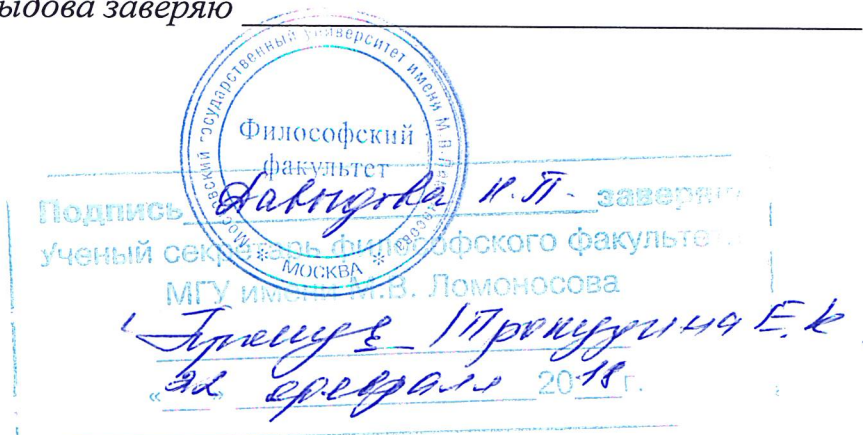 ыдова заверяю
Московский государственный университет имени М.В. Ломоносова
Философский
факультет
* МОСКВА *
Подпись Давыдова И.П. заверяю
Ученый секретарь философского факультета
МГУ имени М.В. Ломоносова
/Прокудина Е.К
« » февраля 2018 г.